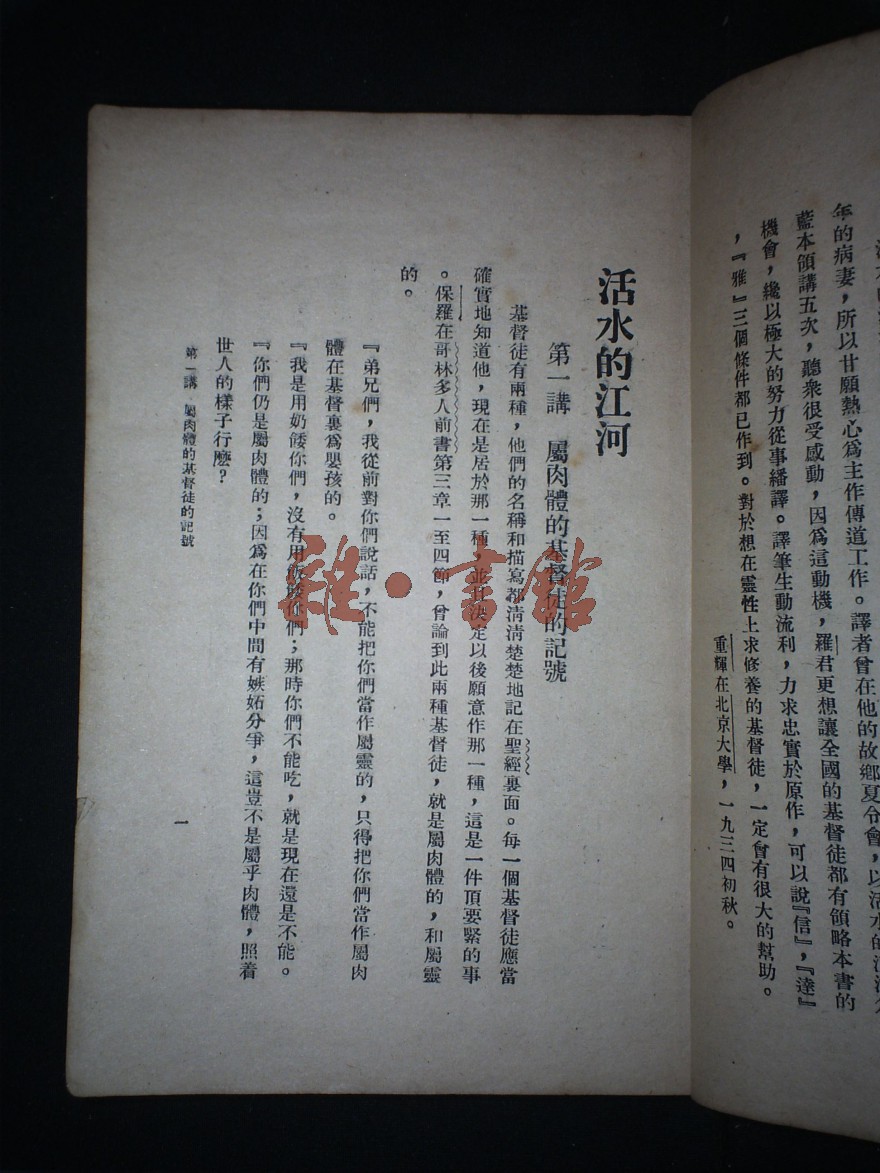 年的病妻，所以甘願熱心爲主作傳道工作。譯者曾在他的故鄉夏令會，以活水的江河
藍本領講五次，聽衆很受感動，因爲這動機，羅君更想讓全國的基督徒都有領略本書的
機會，纔以極大的努力從事繙譯。譯筆生動流利，力求忠實於原作，可以說『信』，『達』
，『雅』三個條件都已作到。對於想在靈性上求修養的基督徒，一定會有很大的幫助。
重輝在北京大學，一九三四初秋。
活水的江河
第一講　屬肉體的基督徒的記號
基督徒有兩種，他們的名稱和描寫都清清楚楚地記在聖經裏面。每一個基督徒應當
確實地知道他，現在是居於那一種，並且決定以後願意作那一種，這是一件頂要緊的事
。保羅在哥林多人前書第三章一至四節，曾論到此兩種基督徒，就是屬肉體的，和屬靈
的。
『弟兄們，我從前對你們說話，不能把你們當作屬靈的，只得把你們當作屬肉
體在基督裏爲嬰孩的。
『我是用奶餧你們，沒有用飯餧你們；那時你們不能吃，就是現在還是不能。
『你們仍是屬肉體的；因爲在你們中間有嫉妬分爭，這豈不是屬乎肉體，照着
世人的樣子行麽？
第一講　屬肉體的基督徒的記號
一
雜·書館